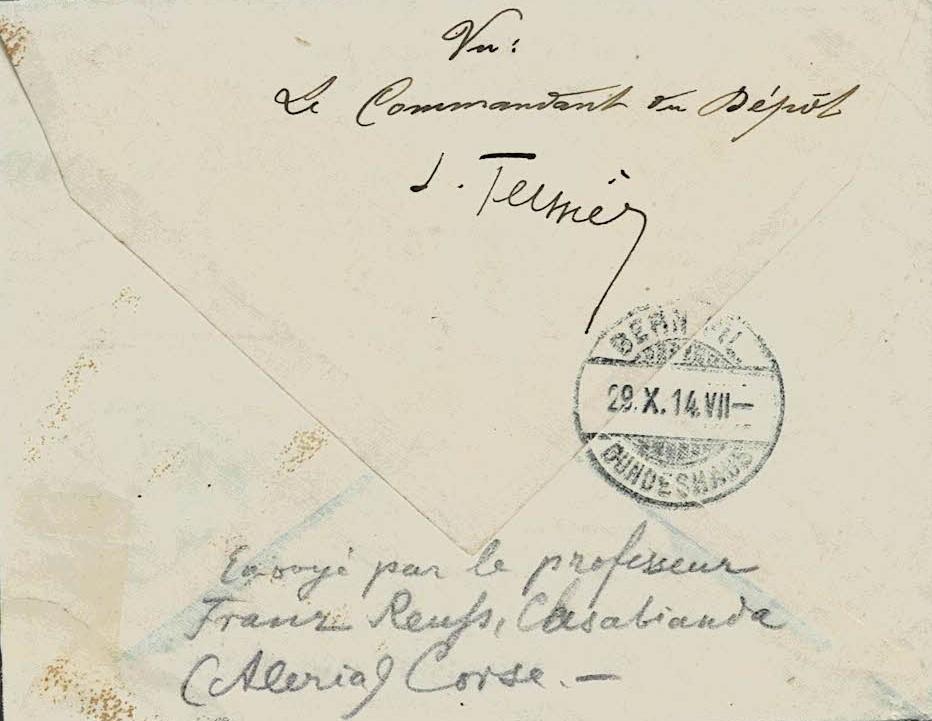 Vu:
Le Commandant du Dépôt
BERN
29.X.14.VII—
BUNDESHAUS
Envoyé par le professeur
Franz Reuß, Casabianda
(Aleria) Corse.—